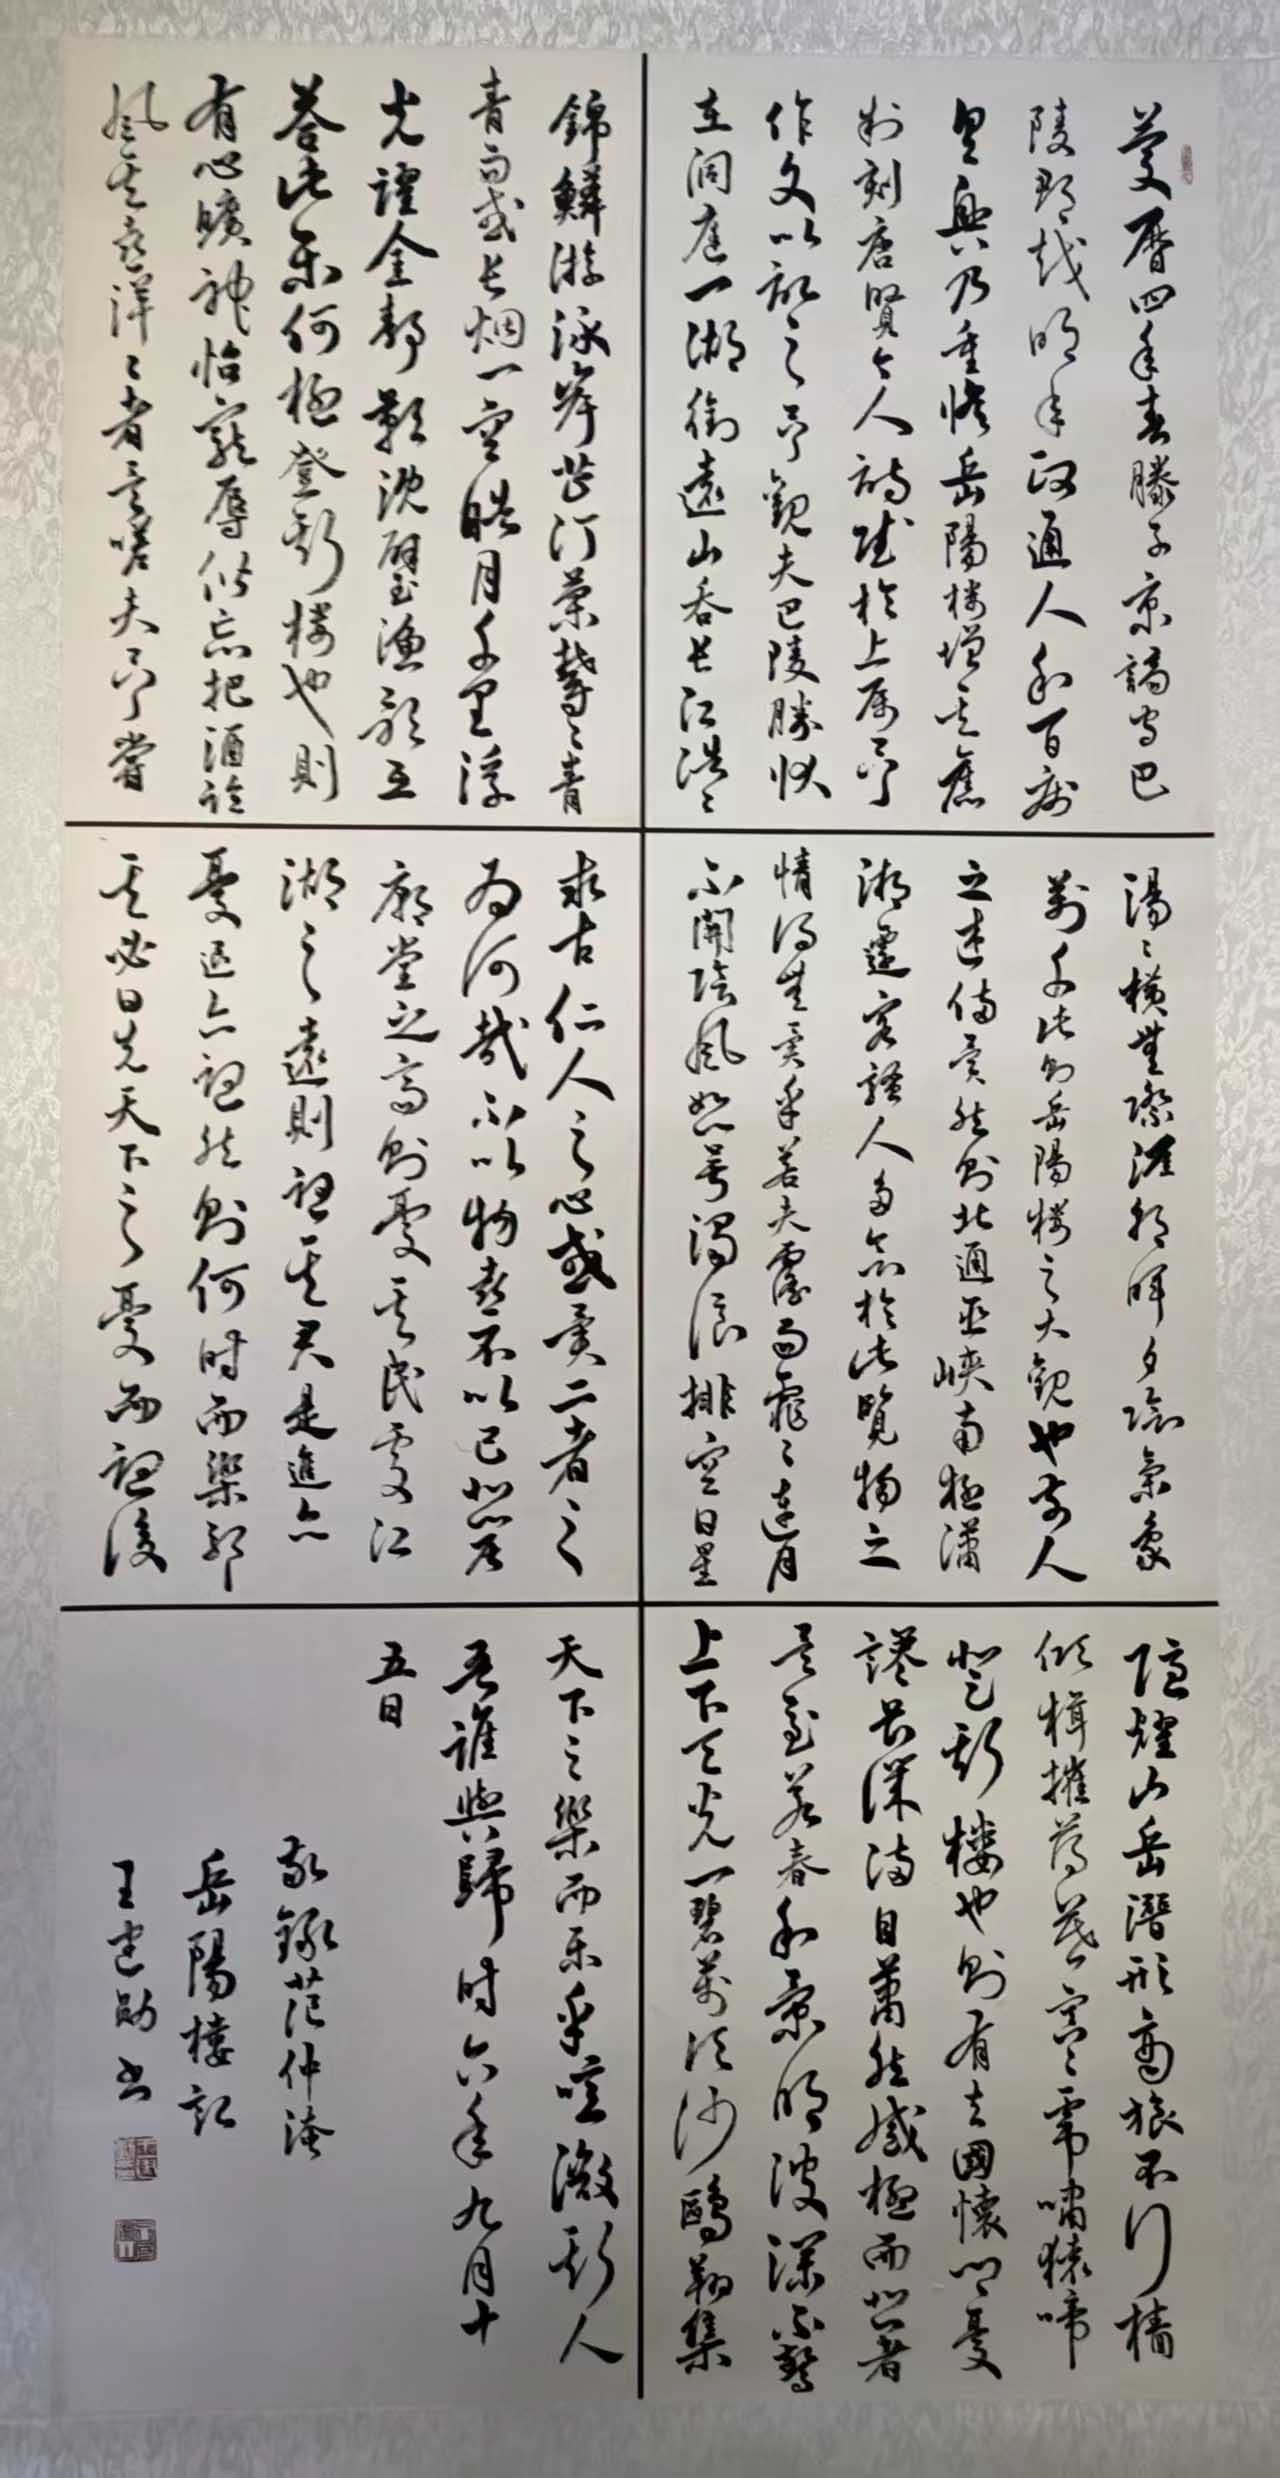 慶曆四年春滕子京謫守巴
陵郡越明年政通人和百廢
具興乃重修岳陽樓增其舊
制刻唐賢今人詩賦於上屬予
作文以記之予觀夫巴陵勝狀
在洞庭一湖銜遠山吞長江浩〻
湯〻橫無際涯朝暉夕陰氣象
萬千此則岳陽樓之大觀也前人
之述備矣然則北通巫峽南極瀟
湘遷客騷人多會於此覽物之
情得無異乎若夫霪雨霏〻連月
不開陰風怒號濁浪排空日星
隱燿山岳潛形商旅不行檣
傾楫摧薄暮冥〻虎嘯猿啼
登斯樓也則有去國懷鄉憂
讒畏譏滿目蕭然感極而悲者
矣至若春和景明波瀾不驚
上下天光一碧萬頃沙鷗翔集
錦鱗游泳岸芷汀蘭鬱〻青
青而或長烟一空皓月千里浮
光躍金靜影沈璧漁歌互
答此樂何極登斯樓也則
有心曠神怡寵辱偕忘把酒臨
風其喜洋〻者矣嗟夫予嘗
求古仁人之心或異二者之
為何哉不以物喜不以己悲居
廟堂之高則憂其民處江
湖之遠則憂其君是進亦
憂退亦憂然則何時而樂耶
其必曰先天下之憂而憂後
天下之樂而樂乎噫微斯人
吾誰與歸時六年九月十
五日
敬錄范仲淹
岳陽樓記
王建勛书